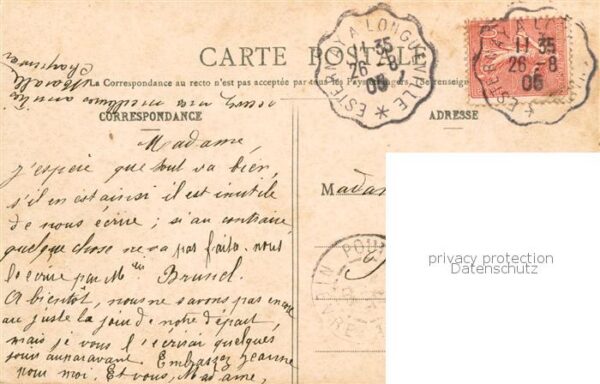 CARTE POSTALE
La Correspondance au recto n'est pas acceptée par tous les Pays étrangers. (Se renseigner
CORRESPONDANCE
ADRESSE
ESTERNAY A LONGUEVILLE
11 35
26 -8
05
ESTERNAY A LO
11 35
26 -8
05
Madame,
j'espère que tout va bien,
s'il en est ainsi il est inutile
de nous écrire ; si au contraire,
quelque chose ne va pas faites-nous
le écrire par Mlle Brunel.
A bientôt, nous ne savons pas encore
au juste le jour de notre départ,
mais je vous l'écrirai quelques
jours auparavant. Embrassez Jeanne
pour moi. Et vous, Madame,
recevez mes meilleures amitiés
Madam
privacy protection
Datenschutz